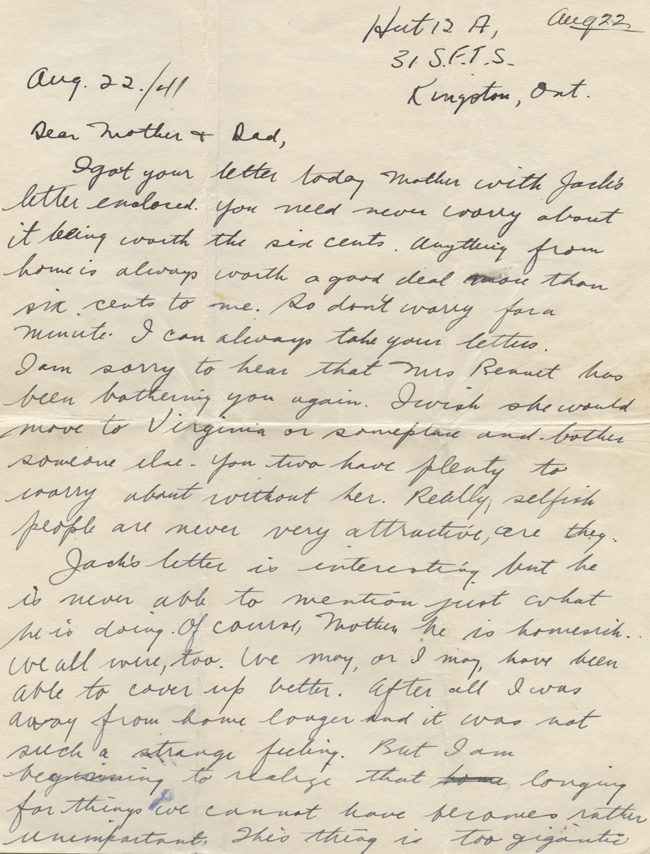 Hut 12 A, Aug 22
31 S.F.T.S.
Aug. 22./41
Kingston, Ont.
Dear Mother + Dad,
I got your letter today Mother with Jack's
letter enclosed. You need never worry about
it being worth the six cents. Anything from
home is always worth a good deal more than
six cents to me. So don't worry for a
minute. I can always take your letters.
I am sorry to hear that Mrs has
been bothering you again. I wish she would
move to Virginia or someplace and bother
someone else. You two have plenty to
worry about without her. Really, selfish
people are never very attractive, are they.
Jack's letter is interesting but he
is never able to mention just what
he is doing. Of course, Mother, he is homesick..
We all were, too. We may, or I may, have been
able to cover up better. After all I was
away from home longer and it was not
such a strange feeling. But I am
beginning to realize that longing
for things we cannot have becomes rather
unimportant. This thing is too gigantic